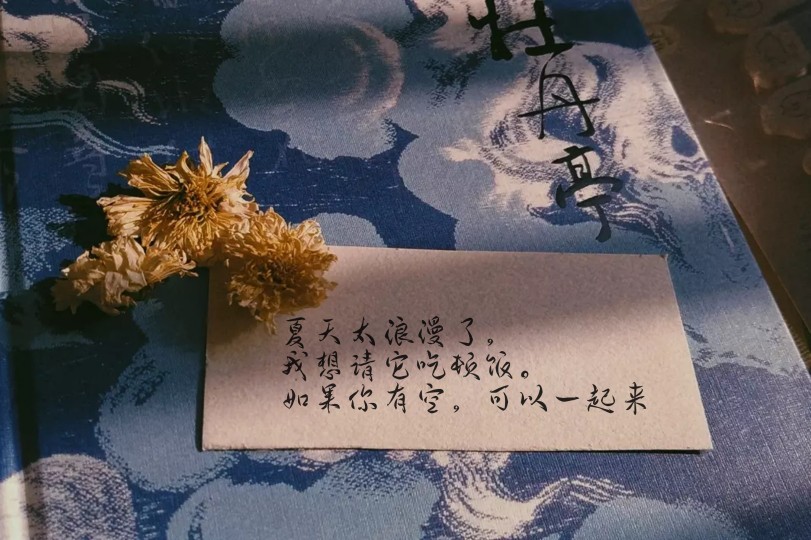 牡丹亭
夏天太浪漫了，
我想请它吃顿饭。
如果你有空，可以一起来